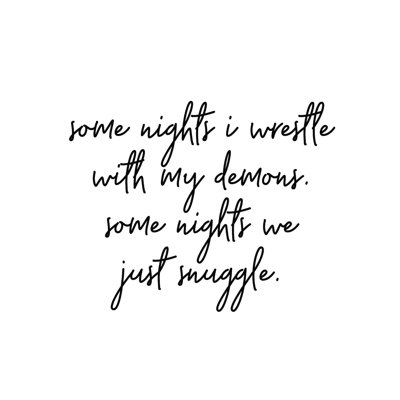 some nights i wrestle
with my demons.
some nights we
just snuggle.